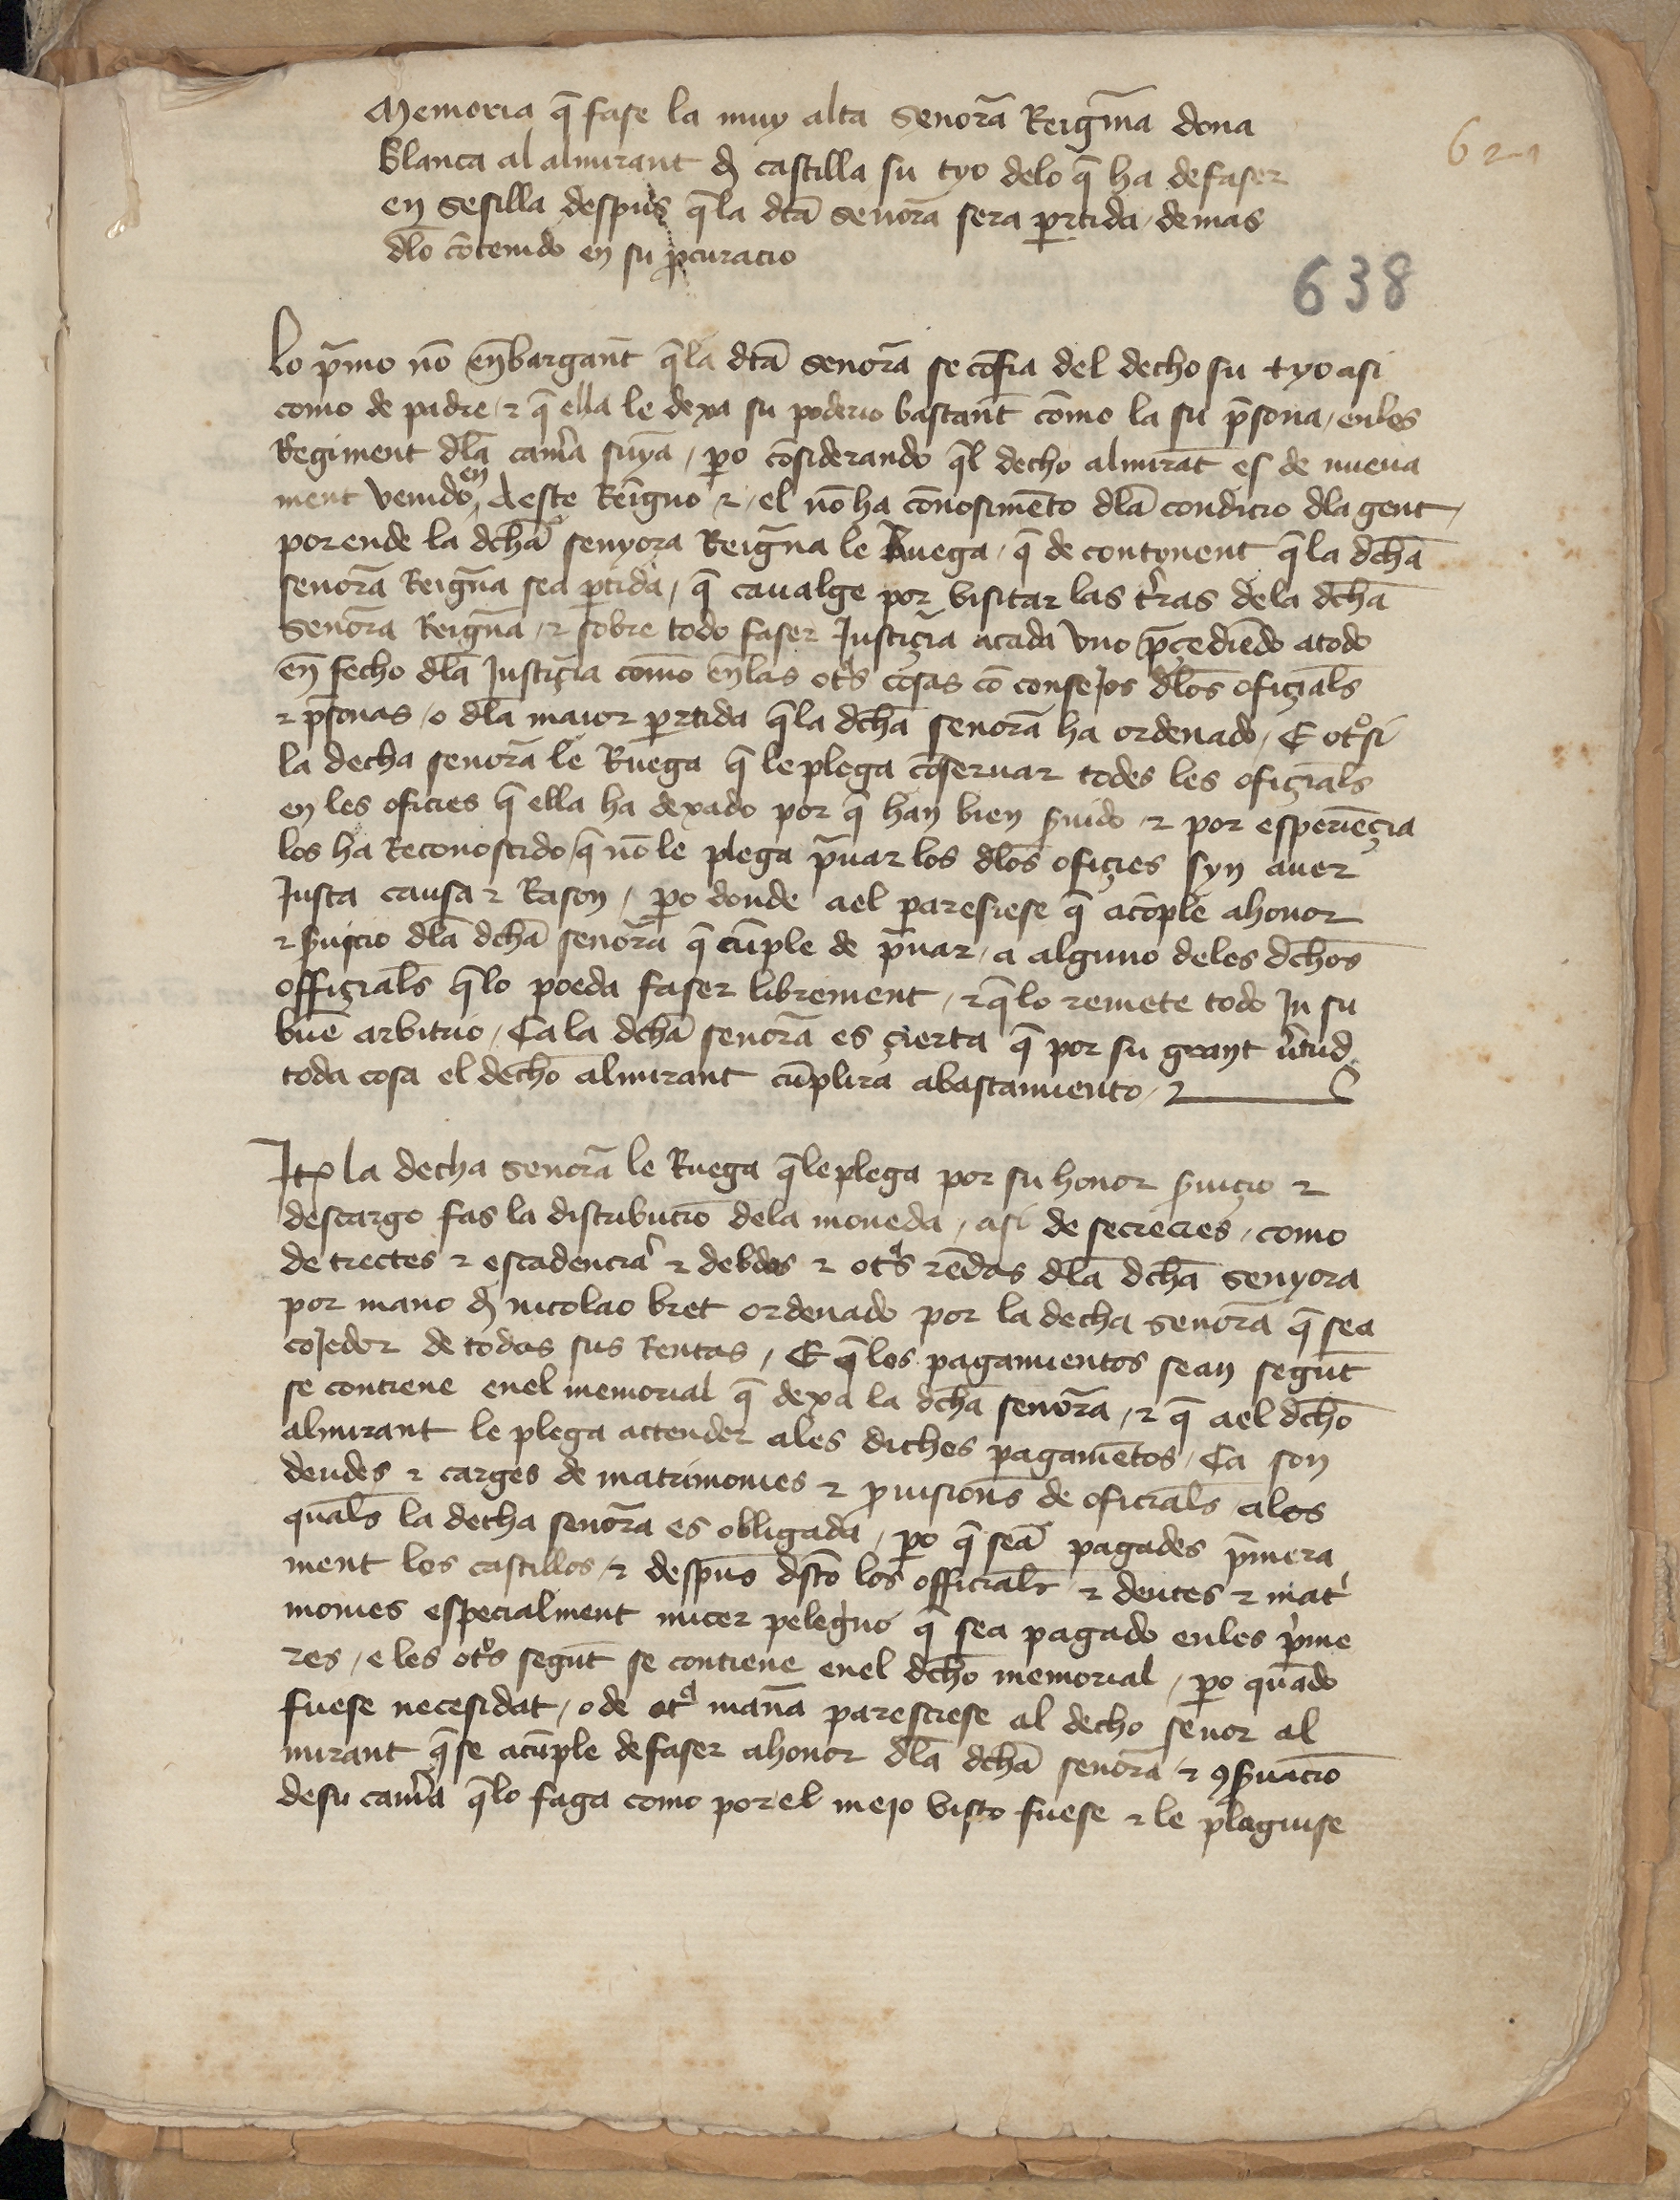 Memoria q̄ fase la muy alta senora᷉ Reigna᷉ dona
blanca al almirant d̉ castilla su tyo delo q̄ ha defaser
en sesilla despus q̄la dta᷉ senora᷉ sera ꝑtida / demas
dlo᷉ co᷉tenido en su ꝓcuracio
621
638
Lo pͥmo no᷉ en᷉bargant᷉ q̄la dta᷉ senora᷉ se co᷉fia del decho su tyo asi
como de padre / ⁊ q̄ ella le dexa su poderio bastant᷉ como᷉ la su ꝑsona / enles
Regiment dla᷉ cam̉a suya / ꝑo co᷉siderando q̄l decho almirat᷉ es de nueua
ment venido en deste Reigno᷉ ⁊ / el no᷉ ha cono᷉sime᷉to dla᷉ condicio dla gent /
por ende la dcha᷉ senyora Reigna᷉ le Ruega / q̄ de contynent q̄la dcha᷉
senora᷉ Reigna᷉ sea ꝑtida / q̄ caualge por visitar las tr̉as dela dcha᷉
senora᷉ Reigna᷉ / ⁊ sobre todo faser Justiçia acada vno ꝓçedie᷉do atodo
en᷉ fecho dla᷉ Justiçia como᷉ en᷉las otͣs cosas co᷉ consejos dlos᷉ ofiçials᷉
⁊ ꝑsonas / o dla᷉ maior ꝑtida q̄la dcha᷉ senora᷉ ha ordenado / E otͦsi
la decha senora᷉ le Ruega q̄ le plega co᷉seruar todes les ofiçials᷉
en les oficies q̄ ella ha dexado por q̄ han bien s̉uido ⁊ por esperie᷉çia
los ha Reconoscido / q̄ no᷉ le plega pͥuar los dlos᷉ ofiçies syn auer
Justa causa ⁊ Rason / ꝑo donde ael paresiese q̄ aco᷉ple ahonor
⁊ s̉uicio dla᷉ dcha᷉ senora᷉ q̄ cu᷉ple de pͥuar / a alguno deles dchos᷉
offiçials᷉ q̄lo poeda faser librement / ⁊ q̄lo remete todo In su
bue᷉ arbitrio / Ca la dcha᷉ senora᷉ es çierta q̄ por su grant v̉tud
toda cosa el decho᷉ almirant cu᷉plira abastamiento / ⁊
Itꝫ la decha senora᷉ le Ruega q̄le plega por su honor s̉uiçio ⁊
descargo fas la distribucio᷉ dela moneda / asi de secrecies / como
de trectes ⁊ escadencia᷉ ⁊ debdes ⁊ otͣs re᷉das dla᷉ dcha᷉ senyora
por mano d̉ nicolao bret ordenado por la decha senora᷉ q̄ sea
cojedor de todas sus Rentas / E q̄ los pagamientos sean segut᷉
se contiene enel memorial q̄ dexa la dcha᷉ senora᷉ / ⁊ q̄ ael dcho᷉
almirant le plega attender ales diches pagame᷉tos / Ca son
deudes ⁊ carges de matrimonies ⁊ ꝓuisions᷉ de oficials᷉ alos
quals᷉ la decha senora᷉ es obligada / ꝑo q̄ sea᷉ pagades pͥmera
ment los castillos / ⁊ despus᷉ dsto᷉ los officials᷉ ⁊ deutes ⁊ matͥ
monies especialment micer pelegͥno q̄ sea pagado enles pͥme
res / e les otͦs segut᷉ se contiene enel dcho᷉ memorial / ꝑo qua᷉do
fuese necesidat / o de otͣ mana᷉ paresciese al decho senor al
mirant q̄ se acu᷉ple defaser ahonor dla᷉ dcha᷉ senora᷉ ⁊ ꝯs̉uacio᷉
desu cam̉a q̄lo faga como por el mejo visto fuese ⁊ le plaguise